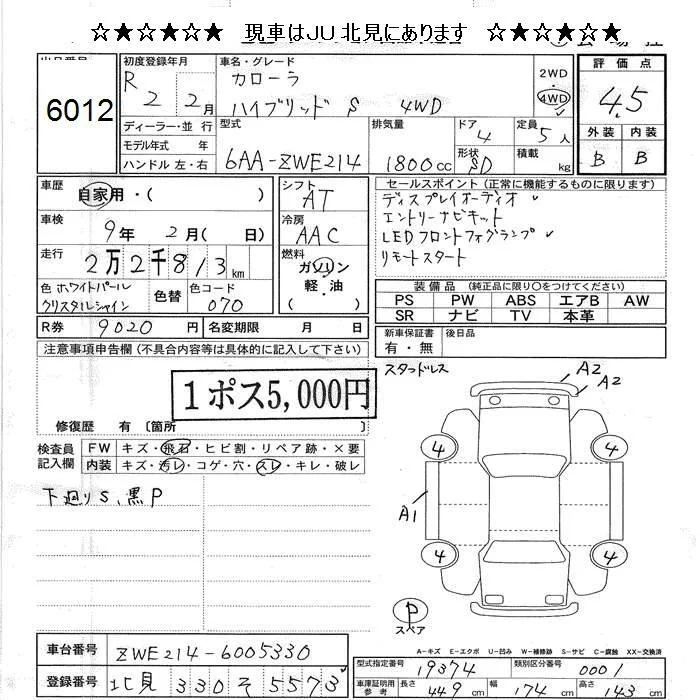 ☆★☆★☆★ 現車はJU北見にあります ☆★☆★☆★
6012
初度登録年月
R 2 2月
車名・グレード
カローラ
ハイブリッド S 4WD
2WD
4WD
評価点
4.5
外装 内装
B B
ディーラー・並行
モデル年式 年
ハンドル 左・右
型式
6AA-ZWE214
排気量
1800cc
ドア
4
形状
SD
定員
5人
積載
kg
車歴
自家用・( )
車検
9年 2月( 日)
走行
2万2千813km
色 ホワイトパール
クリスタルシャイン
色替
色コード
070
シフト
AT
冷房
AAC
燃料
ガソリン
軽・油
( )
セールスポイント (正常に機能するものに限ります)
ディスプレイオーディオ
エントリーナビキット
LEDフロントフォグランプ
リモートスタート
装備品 (純正品に限り○をつけてください)
PS PW ABS エアB AW
SR ナビ TV 本革
R券 9020円
名変期限 月 日
新車保証書
有・無
後日品
注意事項申告欄 (不具合内容等は具体的に記入して下さい)
1ポス5,000円
修復歴 有 〔箇所 〕
スタッドレス
A2
A2
検査員
記入欄
FW キズ・飛石・ヒビ割・リペア跡・×要
内装 キズ・汚レ・コゲ・穴・スレ・キレ・破レ
下廻りS、黒P
4 4
A1
4 4
P
スペア
A-キズ E-エクボ U-凹み W-補修跡 S-サビ C-腐蝕 XX-交換済
車台番号 ZWE214-6005330
登録番号 北見 330 そ 5573
型式指定番号 19374
類別区分番号 0001
車庫証明用
参考
長さ 449cm 幅 174cm 高さ 143cm